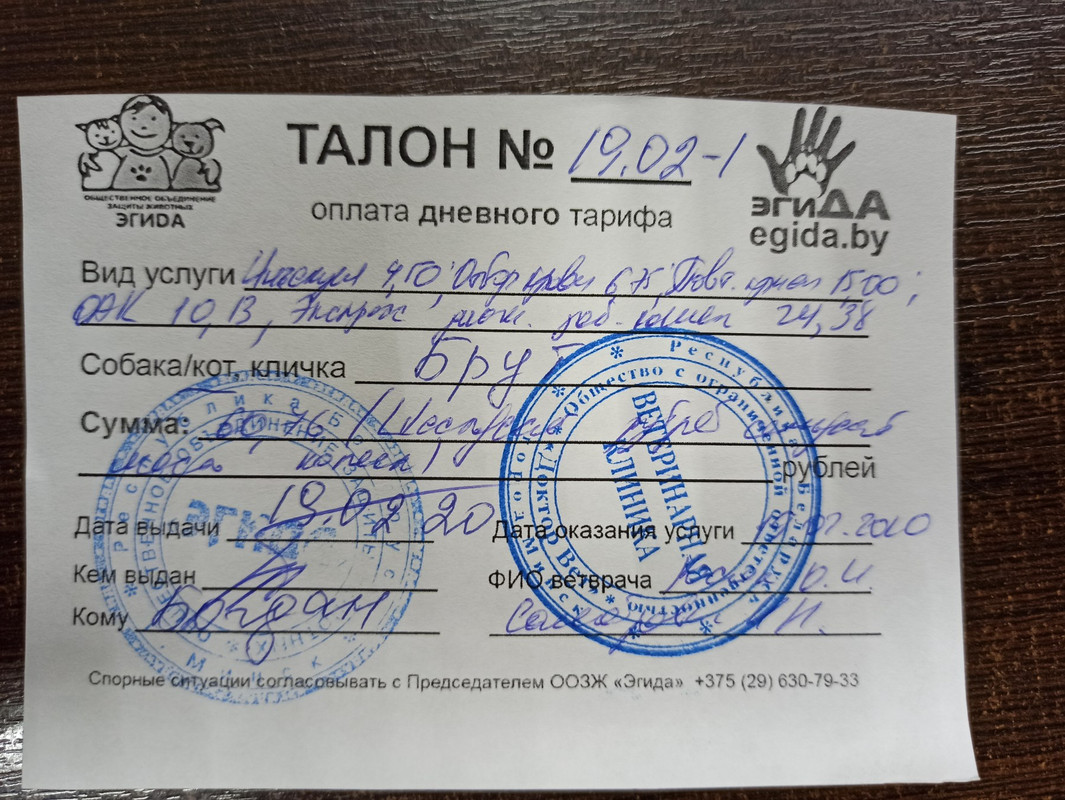 ОБЩЕСТВЕННОЕ ОБЪЕДИНЕНИЕ
ЗАЩИТЫ ЖИВОТНЫХ
ЭГИDА
ТАЛОН № 19.02-1
эгиДА
egida.by
оплата дневного тарифа
Вид услуги 4,50; Отбор крови 6,75; Повт. прием 15,00;
ОАК 10,13, Экспресс 24,38
Собака/кот, кличка Бру
Сумма: 60,76 (Шестьдесят рублей семьдесят
копеек) рублей
Дата выдачи 19.02.20 Дата оказания услуги .02.2020
Кем выдан ФИО ветврача
Кому Богдан
Спорные ситуации согласовывать с Председателем ООЗЖ «Эгида» +375 (29) 630-79-33
Республика Беларусь
г. Минск
ЭГИДА
Республика Беларусь
Общество с ограниченной ответственностью
«Доктор Вет»
город Минск
ВЕТЕРИНАРНАЯ
КЛИНИКА